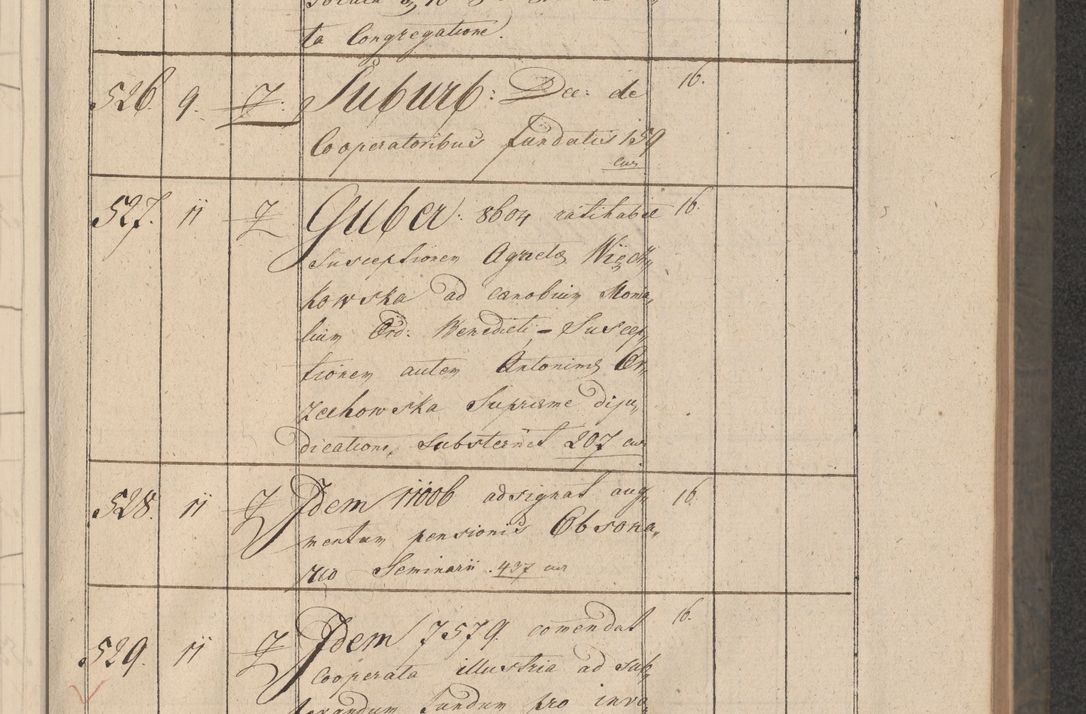 ta Congregatione.
526. 9. Suburb: Dec: de 16.
Cooperatoribus fundatis 159
cur
527. 11 Guber. 8604 ratihabet 16.
Susceptionem Agnetis Więck,
kowska ad cænobium Monia,
lium Ord: Benedicti – Suscep,
tionem autem Antoninæ Or,
zechowska Supræme diju,
dicatione, Substernet 207 cur
528. 11 Idem 11006 adsignat aug, 16.
mentum pensionis Obsona,
rio Seminarii. 437 cur
529. 11 Idem 7579. comendat 16.
Cooperata illustria ad sub,
fundum pro inva